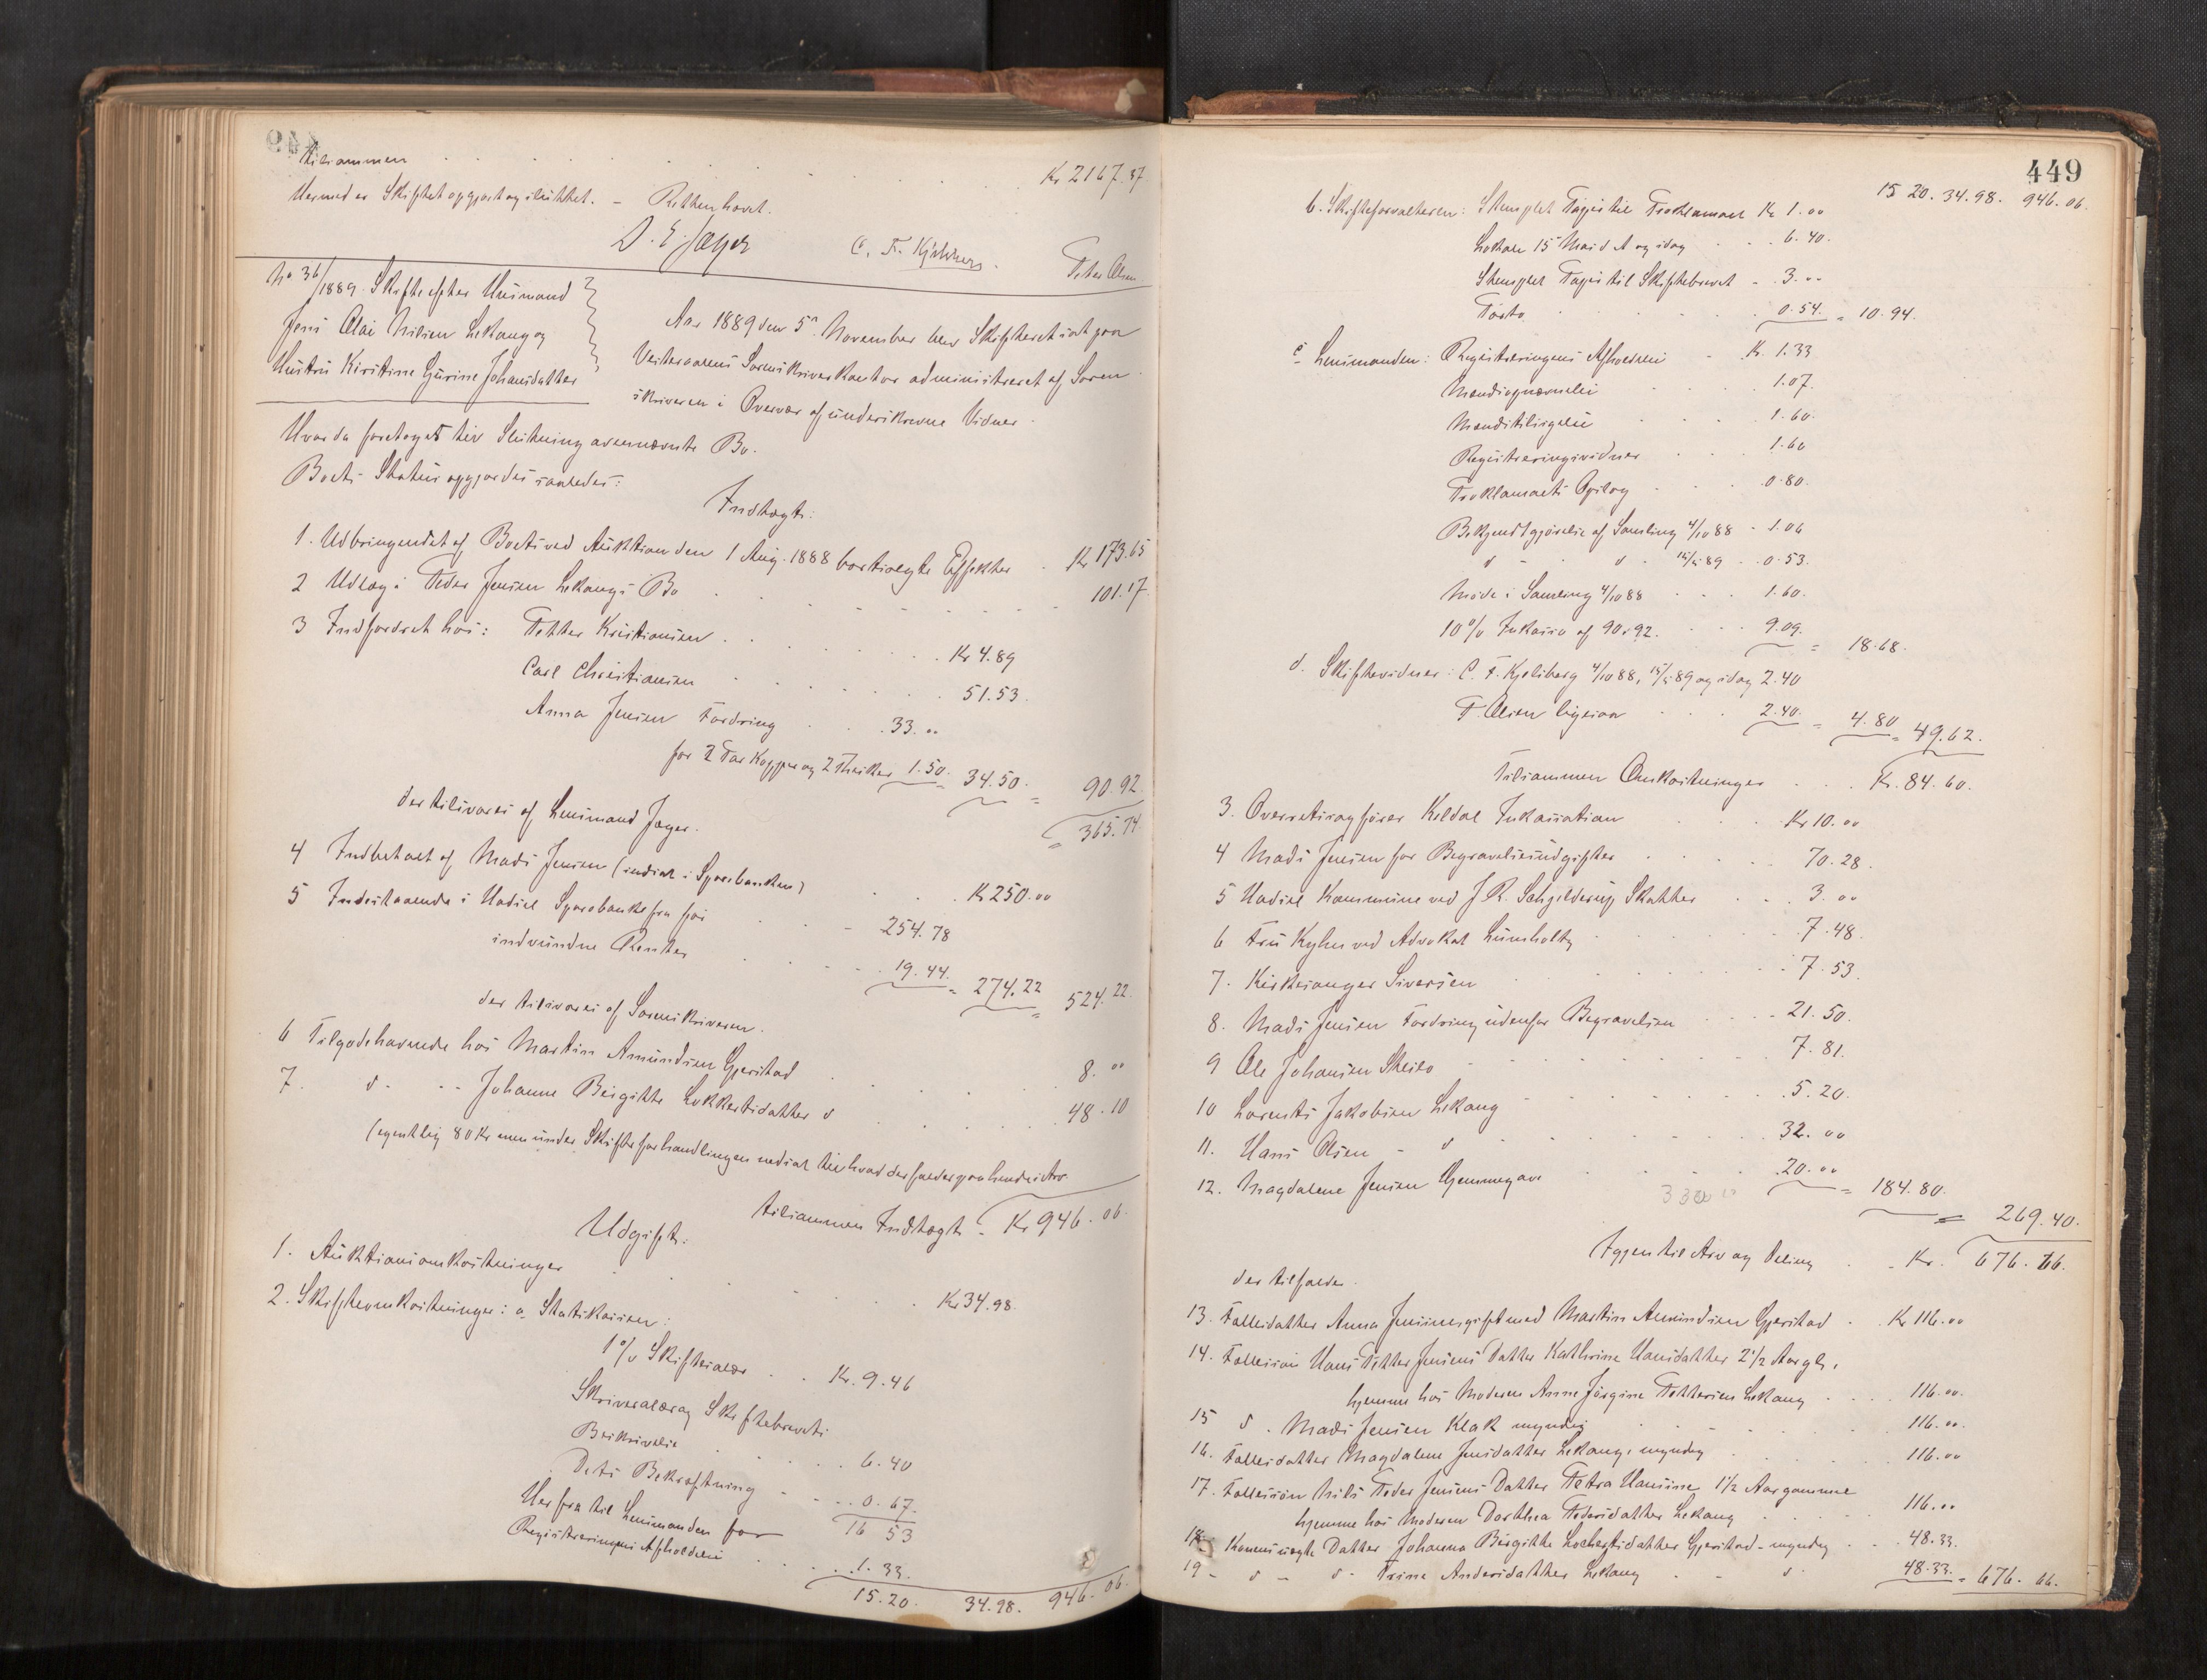 tilsammen Kr 2167.37
Hermed er Skiftet opgjort og sluttet. – Retten hævet.
D. E. Jæger C. F. Kjelsberg Peter Olsen
No 36/1889. Skifte efter Husmand
Jens Olai Nilsen Lekang og
Hustru Kirstine Gurine Johansdatter
Aar 1889 den 5te November blev Skifteret sat paa
Vesteraalens Sorenskriverkontor administreret af Soren-
skriveren i Overvær af underskrevne Vidner.
Hvorda foretoges til Slutning ovennævnte Bo.
Boets Status opgjordes saaledes:
Indtægt:
1. Udbringendet af Boets ved Auktion den 1 Aug. 1888 bortsolgte Effekter Kr 173.65
2 Udlæg i Peder Jensen Lekangs Bo 101.17
3 Indfordret hos: Petter Kristiansen Kr 4.89
Carl Christiansen 51.53.
Anna Jensen Fordring 33.00
for 2 Par Kopper og 2 Thesker 1.50. = 34.50. = 90.92.
der tilsvares af Lensmand Jæger. = 365.74
4 Indbetalt af Mads Jensen (indsat i Sparebanken) Kr 250.00
5 Indestaaende i Hadsel Sparebank fra før 254.78
indvundne Renter 19.44. = 274.22 = 524.22.
der tilsvares af Sorenskriveren.
6 Tilgodehavende hos Martin Amundsen Gjerstad 8.00
7. d - - Johanne Birgitte Lokkertsdatter d 48.10
(egentlig 80 Kr men under Skifteforhandlingen nedsat til hvad der falder paa hendes Arv
tilsammen Indtægt - Kr 946.06.
Udgift:
1. Auktionsomkostninger Kr 34.98.
2. Skifteomkostninger: a. Statskassen:
1 % Skiftesalær Kr. 9.46
Skriversalær og Skiftebrevets
Beskrivelse 6.40
Dets Bekræftning 0.67.
16 53
Herfra til Lensmanden for
Registreringens Afholdelse 1.33.
15.20. 34.98. 946.06.
449
15 20. 34.98. 946.06.
b. Skifteforvalteren: Stemplet Papir til Proklamaet Kr 1.00
Lokale 15 Mai d A og idag 6.40.
Stemplet Papir til Skiftebrevet - 3.00
Porto 0.54. = 10.94.
c. Lensmanden: Registreringens Afholdelse Kr. 1.33
Mandsopnævnelse 1.07.
Mandstilsigelse 1.60.
Registreringsvidner 1.60
Proklamaets Opslag 0.80.
Bekjendtgjørelse af Samling 4/10 88 - 1.06
d - d - 15/5 89 - 0.53.
Møde i Samling 4/10 88 1.60.
10 % Inkasso af 90.92. 9.09. = 18.68.
d. Skiftevidner: C. F. Kjelsberg 4/10 88, 15/5 89 og idag 2.40
P. Olsen ligesaa 2.40. = 4.80 = 49.62.
Tilsammen Omkostninger Kr. 84.60.
3. Overretssagfører Keldal Inkassation Kr 10.00
4 Mads Jensen for Begravelsesudgifter 70.28.
5 Hadsel Kommune ved J R. Schjelderup Skatter 3.00
6 Fru Kyhn ved Advokat Lumholtz 7.48.
7. Kirkesanger Siversen 7.53.
8. Mads Jensen Fordring udenfor Begravelsen 21.50.
9 Ole Johansen Skeilo 7.81.
10 Lorents Jakobsen Lekang 5.20.
11. Hans Olsen - d 32.00
12. Magdalene Jensen Hjemmegave 20.00 = 184.80.
= 269.40.
Igjen til Arv og Deling Kr. 676.66.
der tilfalder.
13. Fællesdatter Anna Jensine gift med Martin Amundsen Gjerstad Kr 116.00
14. Fællessøn Hans Petter Jensens Datter Kathrine Hansdatter 2 1/2 Aar gl.
hjemme hos Moderen Anne Jørgine Pettersen Lekang 116.00.
15 d. Mads Jensen Klak myndig 116.00.
16. Fællesdatter Magdalene Jensdatter Lekang, myndig 116.00
17. Fællessøn Nils Peder Jensens Datter Petra Hansine, 1 1/2 Aar gammel
hjemme hos Moderen Dorthea Pedersdatter Lekang 116.00
18. Konens uægte Datter Johanna Birgitte Lochertsdatter Gjerstad - myndig 48.33.
19 - d - d - Trine Andersdatter Lekang - d. 48.33. = 676.66.